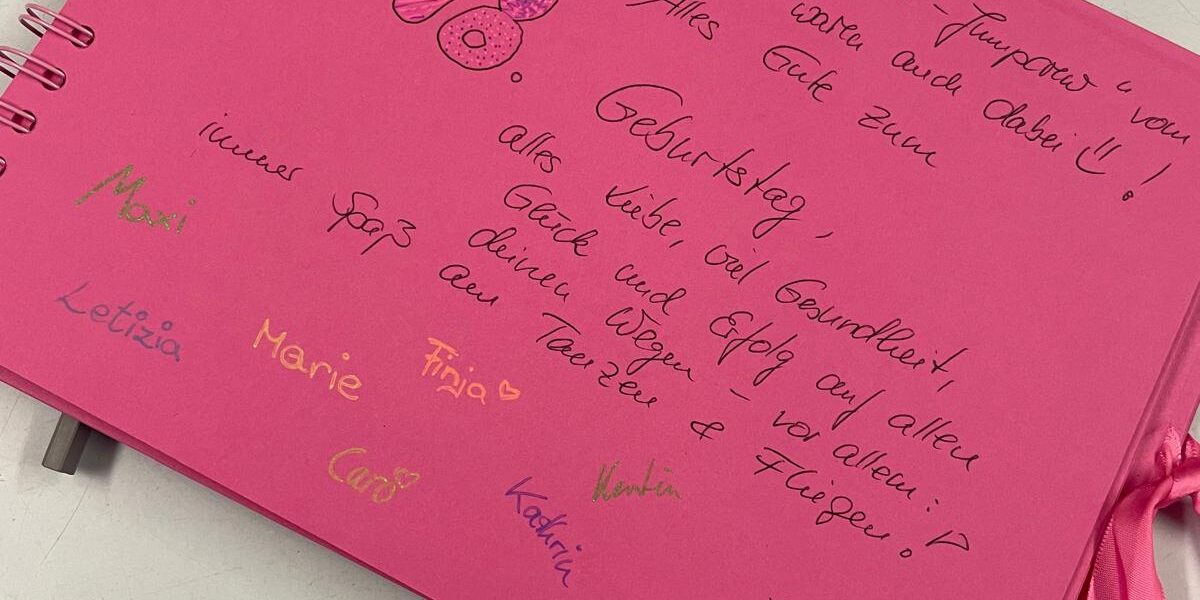 - Jumpcrew" vom
waren auch dabei !! !
18.
Alles Gute zum
Geburtstag,
alles Liebe, viel Gesundheit,
Glück und Erfolg auf allen
deinen Wegen - vor allem:
immer Spaß am Tanzen & Fliegen!
Maxi
Letizia
Marie
Finja
Caro
Kathrin